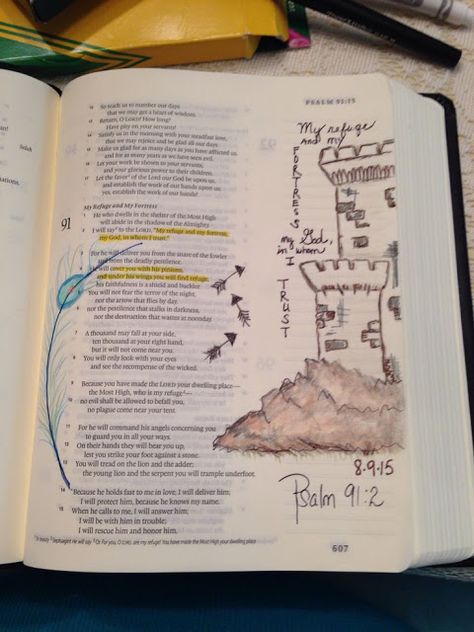 PSALM 91:15
12 So teach us to number our days
that we may get a heart of wisdom.
13 Return, O LORD! How long?
Have pity on your servants!
14 Satisfy us in the morning with your steadfast love,
that we may rejoice and be glad all our days.
15 Make us glad for as many days as you have afflicted us,
and for as many years as we have seen evil.
16 Let your work be shown to your servants,
and your glorious power to their children.
17 Let the favor of the Lord our God be upon us,
and establish the work of our hands upon us;
yes, establish the work of our hands!
My Refuge and My Fortress
91
1 He who dwells in the shelter of the Most High
will abide in the shadow of the Almighty.
2 I will say to the LORD, "My refuge and my fortress,
my God, in whom I trust."
3 For he will deliver you from the snare of the fowler
and from the deadly pestilence.
He will cover you with his pinions,
and under his wings you will find refuge;
his faithfulness is a shield and buckler.
You will not fear the terror of the night,
nor the arrow that flies by day,
6 nor the pestilence that stalks in darkness,
nor the destruction that wastes at noonday.
7 A thousand may fall at your side,
ten thousand at your right hand,
but it will not come near you.
8 You will only look with your eyes
and see the recompense of the wicked.
9 Because you have made the LORD your dwelling place—
the Most High, who is my refuge—
10 no evil shall be allowed to befall you,
no plague come near your tent.
11 For he will command his angels concerning you
to guard you in all your ways.
12 On their hands they will bear you up,
lest you strike your foot against a stone.
13 You will tread on the lion and the adder;
the young lion and the serpent you will trample underfoot.
14 "Because he holds fast to me in love, I will deliver him;
I will protect him, because he knows my name.
15 When he calls to me, I will answer him;
I will be with him in trouble;
I will rescue him and honor him.
607
My refuge
and my
FORTRESS
my God,
in whom
I
TRUST
8-9-15
Psalm 91:2
Selah